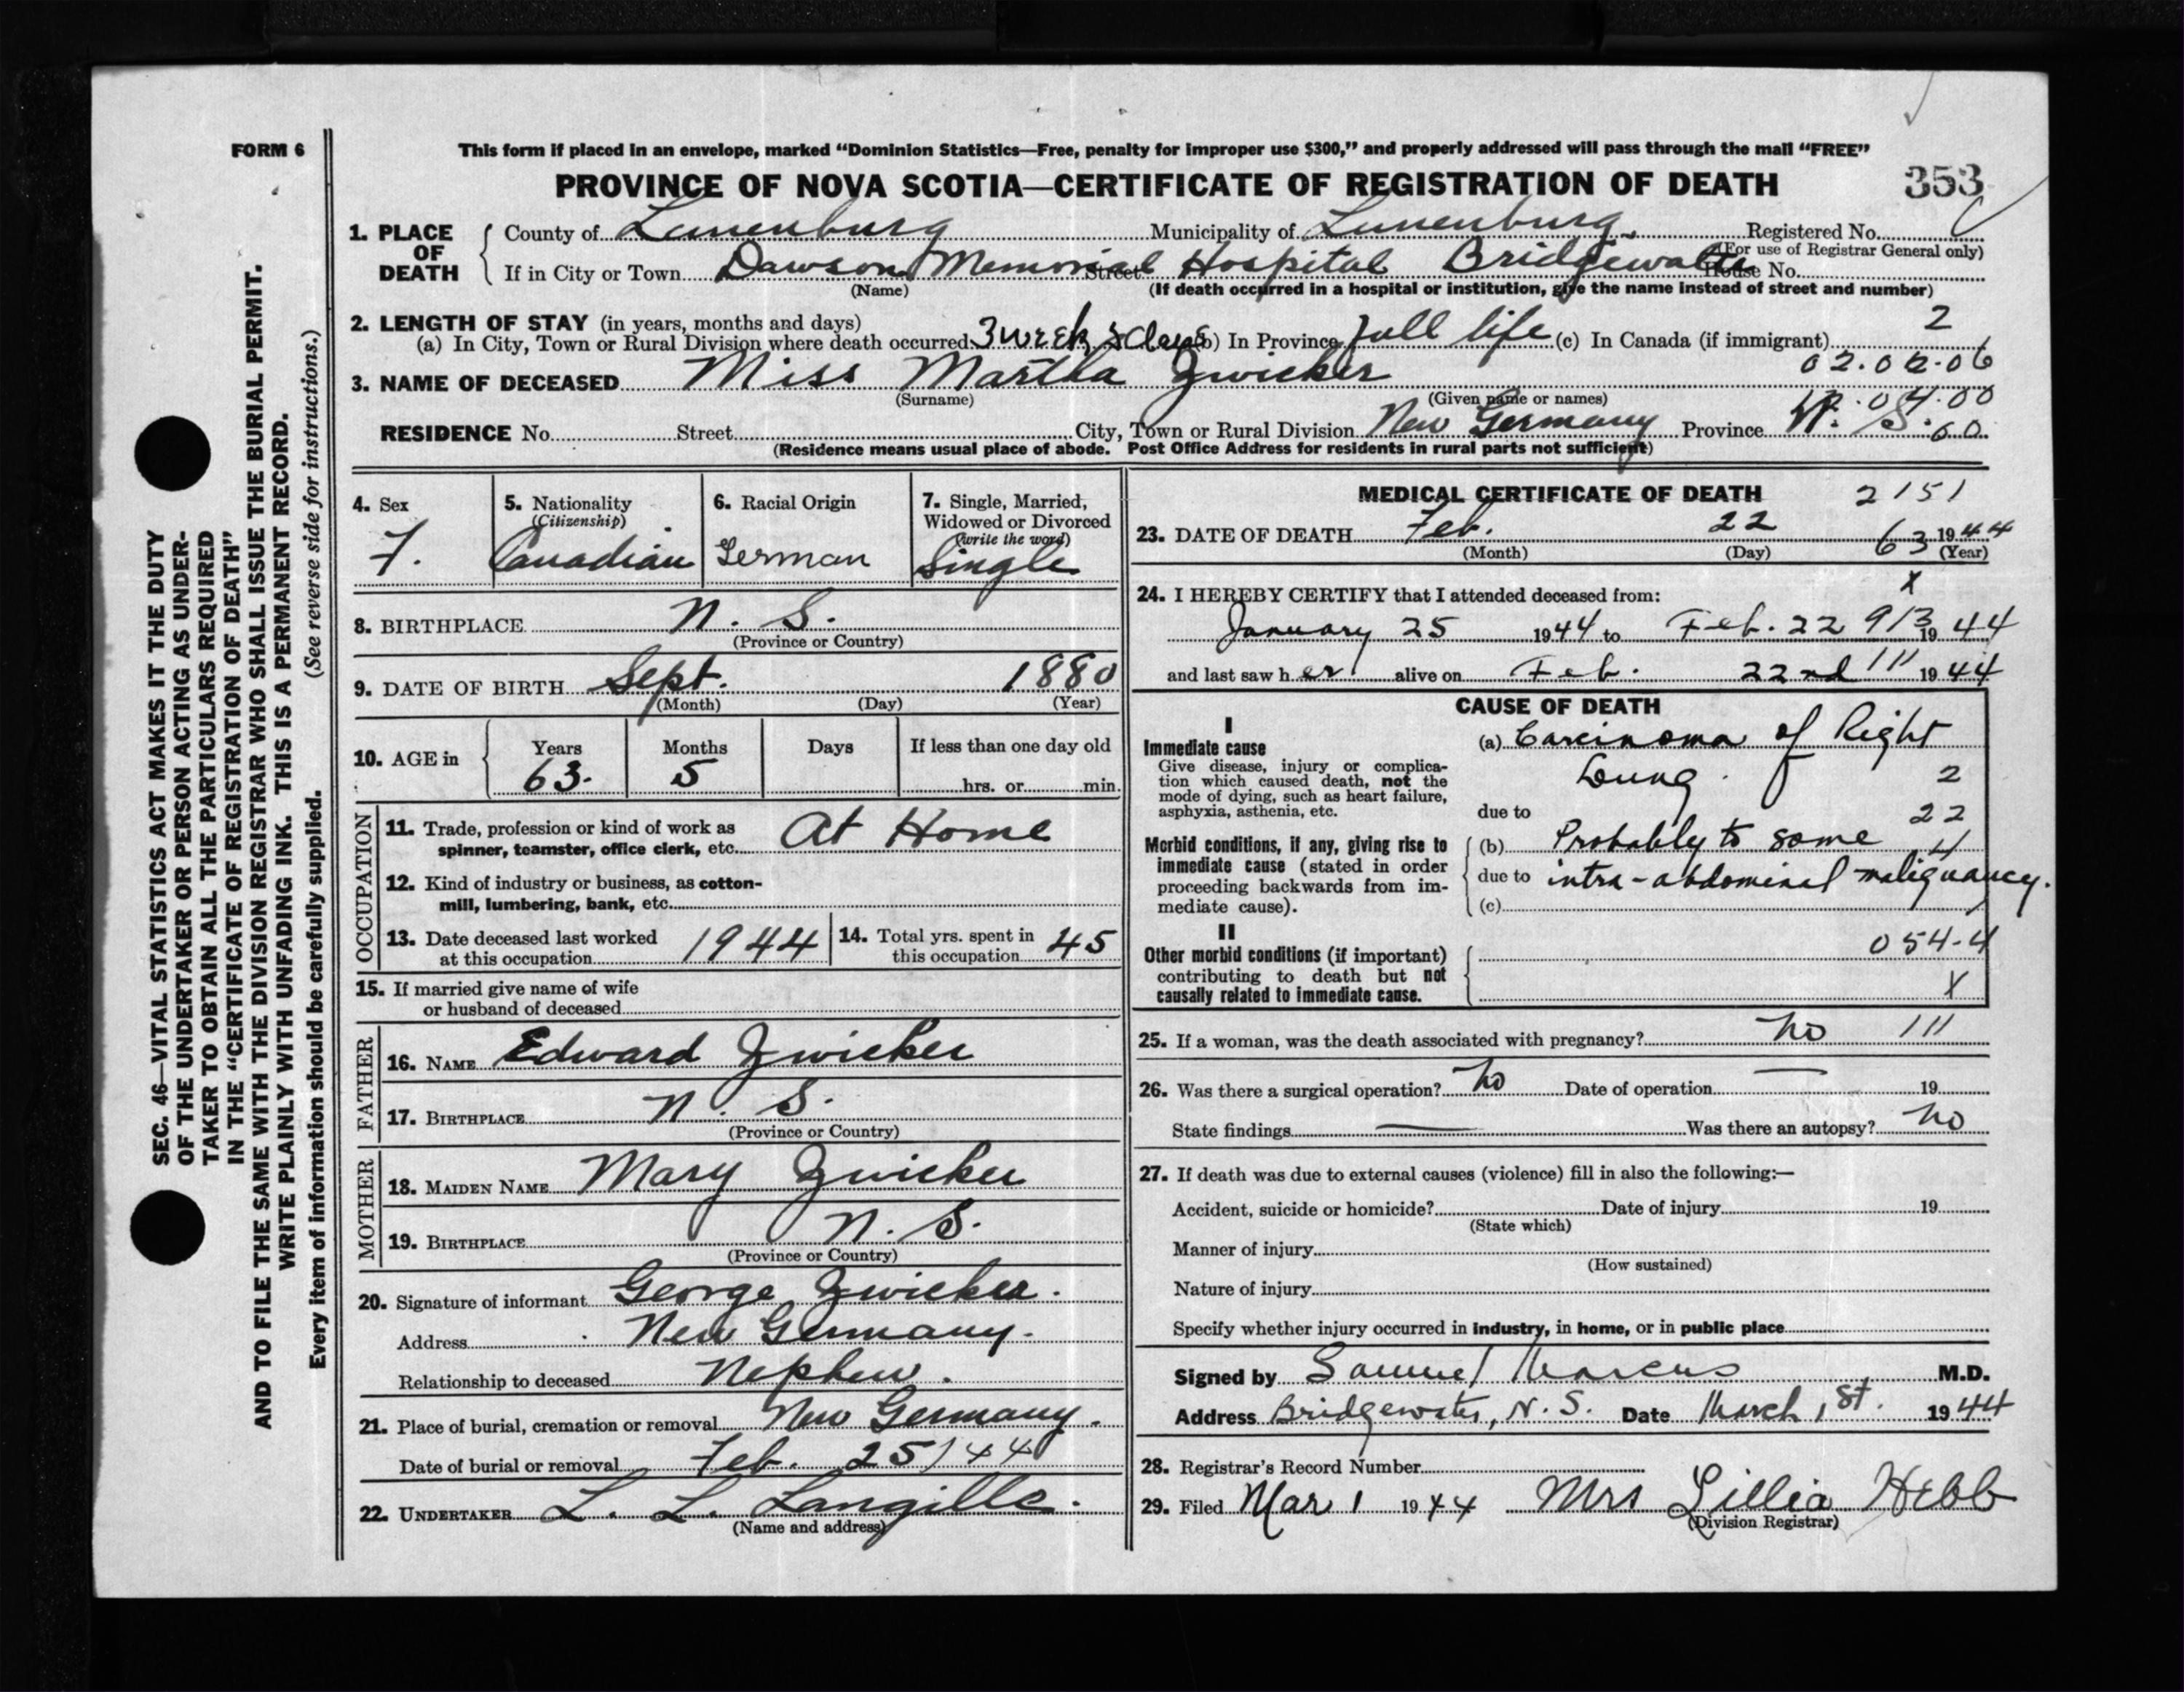 FORM 6
This form if placed in an envelope, marked “Dominion Statistics—Free, penalty for improper use $300,” and properly addressed will pass through the mail “FREE”
PROVINCE OF NOVA SCOTIA—CERTIFICATE OF REGISTRATION OF DEATH
353
1. PLACE OF DEATH
County of Lunenburg Municipality of Lunenburg Registered No.
(For use of Registrar General only)
If in City or Town Dawson Memorial Hospital Bridgewater Street House No.
(Name) (If death occurred in a hospital or institution, give the name instead of street and number)
2. LENGTH OF STAY (in years, months and days) 2
(a) In City, Town or Rural Division where death occurred 3 week (b) In Province full life (c) In Canada (if immigrant)
02.02.06
3. NAME OF DECEASED Miss Martha Zwicker
(Surname) (Given name or names)
RESIDENCE No. Street City, Town or Rural Division New Germany Province N. S.
(Residence means usual place of abode. Post Office Address for residents in rural parts not sufficient)
4. Sex
F.
5. Nationality
(Citizenship)
Canadian
6. Racial Origin
German
7. Single, Married,
Widowed or Divorced
(write the word)
Single
8. BIRTHPLACE N. S.
(Province or Country)
9. DATE OF BIRTH Sept. 1880
(Month) (Day) (Year)
10. AGE in Years Months Days If less than one day old
63. 5 hrs. or min.
OCCUPATION
11. Trade, profession or kind of work as
spinner, teamster, office clerk, etc. At Home
12. Kind of industry or business, as cotton-
mill, lumbering, bank, etc.
13. Date deceased last worked
at this occupation 1944
14. Total yrs. spent in
this occupation 45
15. If married give name of wife
or husband of deceased
FATHER
16. NAME Edward Zwicker
17. BIRTHPLACE N. S.
(Province or Country)
MOTHER
18. MAIDEN NAME Mary Zwicker
19. BIRTHPLACE N. S.
(Province or Country)
20. Signature of informant George Zwicker.
Address New Germany.
Relationship to deceased Nephew.
21. Place of burial, cremation or removal New Germany.
Date of burial or removal Feb. 25/44
22. UNDERTAKER L. L. Langille.
(Name and address)
MEDICAL CERTIFICATE OF DEATH 2151
23. DATE OF DEATH Feb. 22 1944
(Month) (Day) 63 (Year)
x
24. I HEREBY CERTIFY that I attended deceased from:
January 25 1944 to Feb. 22 913 1944
and last saw her alive on Feb. 22nd 111 1944
CAUSE OF DEATH
I
Immediate cause
Give disease, injury or complica-
tion which caused death, not the
mode of dying, such as heart failure,
asphyxia, asthenia, etc.
(a) Carcinoma of Right
Lung. 2
due to 22
Morbid conditions, if any, giving rise to
immediate cause (stated in order
proceeding backwards from im-
mediate cause).
(b) Probably to some
due to intra-abdominal malignancy.
(c)
II
Other morbid conditions (if important)
contributing to death but not
causally related to immediate cause.
054-4
X
25. If a woman, was the death associated with pregnancy? No 111
26. Was there a surgical operation? No Date of operation — 19
State findings — Was there an autopsy? No
27. If death was due to external causes (violence) fill in also the following:—
Accident, suicide or homicide? Date of injury 19
(State which)
Manner of injury
(How sustained)
Nature of injury
Specify whether injury occurred in industry, in home, or in public place
Signed by Samuel Marcus M.D.
Address Bridgewater, N. S. Date March 1st. 1944
28. Registrar's Record Number
29. Filed Mar 1 1944 Mrs Lillia Hebb
(Division Registrar)
SEC. 46—VITAL STATISTICS ACT MAKES IT THE DUTY
OF THE UNDERTAKER OR PERSON ACTING AS UNDER-
TAKER TO OBTAIN ALL THE PARTICULARS REQUIRED
IN THE “CERTIFICATE OF REGISTRATION OF DEATH”
AND TO FILE THE SAME WITH THE DIVISION REGISTRAR WHO SHALL ISSUE THE BURIAL PERMIT.
WRITE PLAINLY WITH UNFADING INK. THIS IS A PERMANENT RECORD.
Every item of information should be carefully supplied. (See reverse side for instructions.)